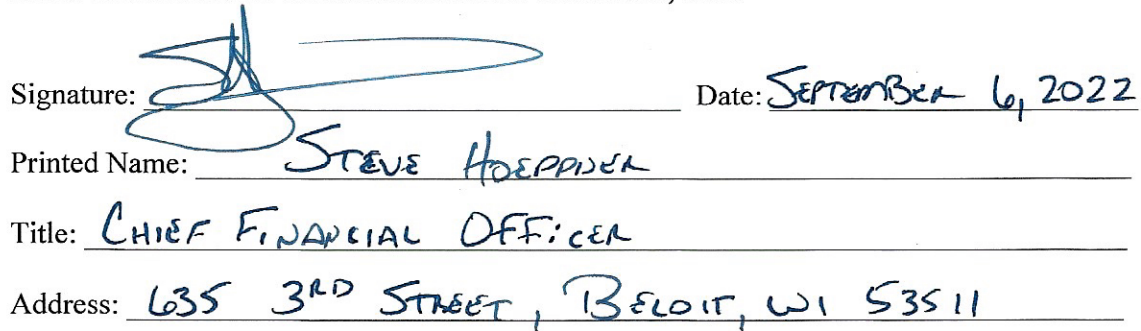 Signature: Date: SEPTEMBER 6, 2022
Printed Name: STEVE HOEPPNER
Title: CHIEF FINANCIAL OFFICER
Address: 635 3RD STREET, BELOIT, WI 53511